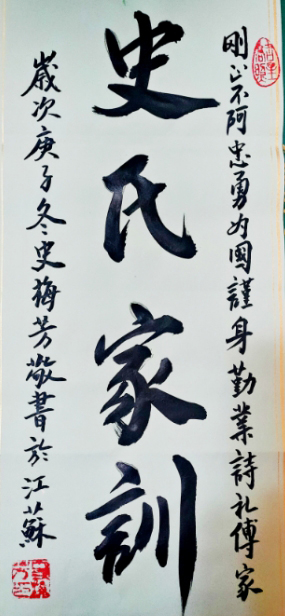 剛正不阿忠勇为國謹身勤業詩礼傳家
史氏家訓
歲次庚子冬史梅芳敬書於江蘇